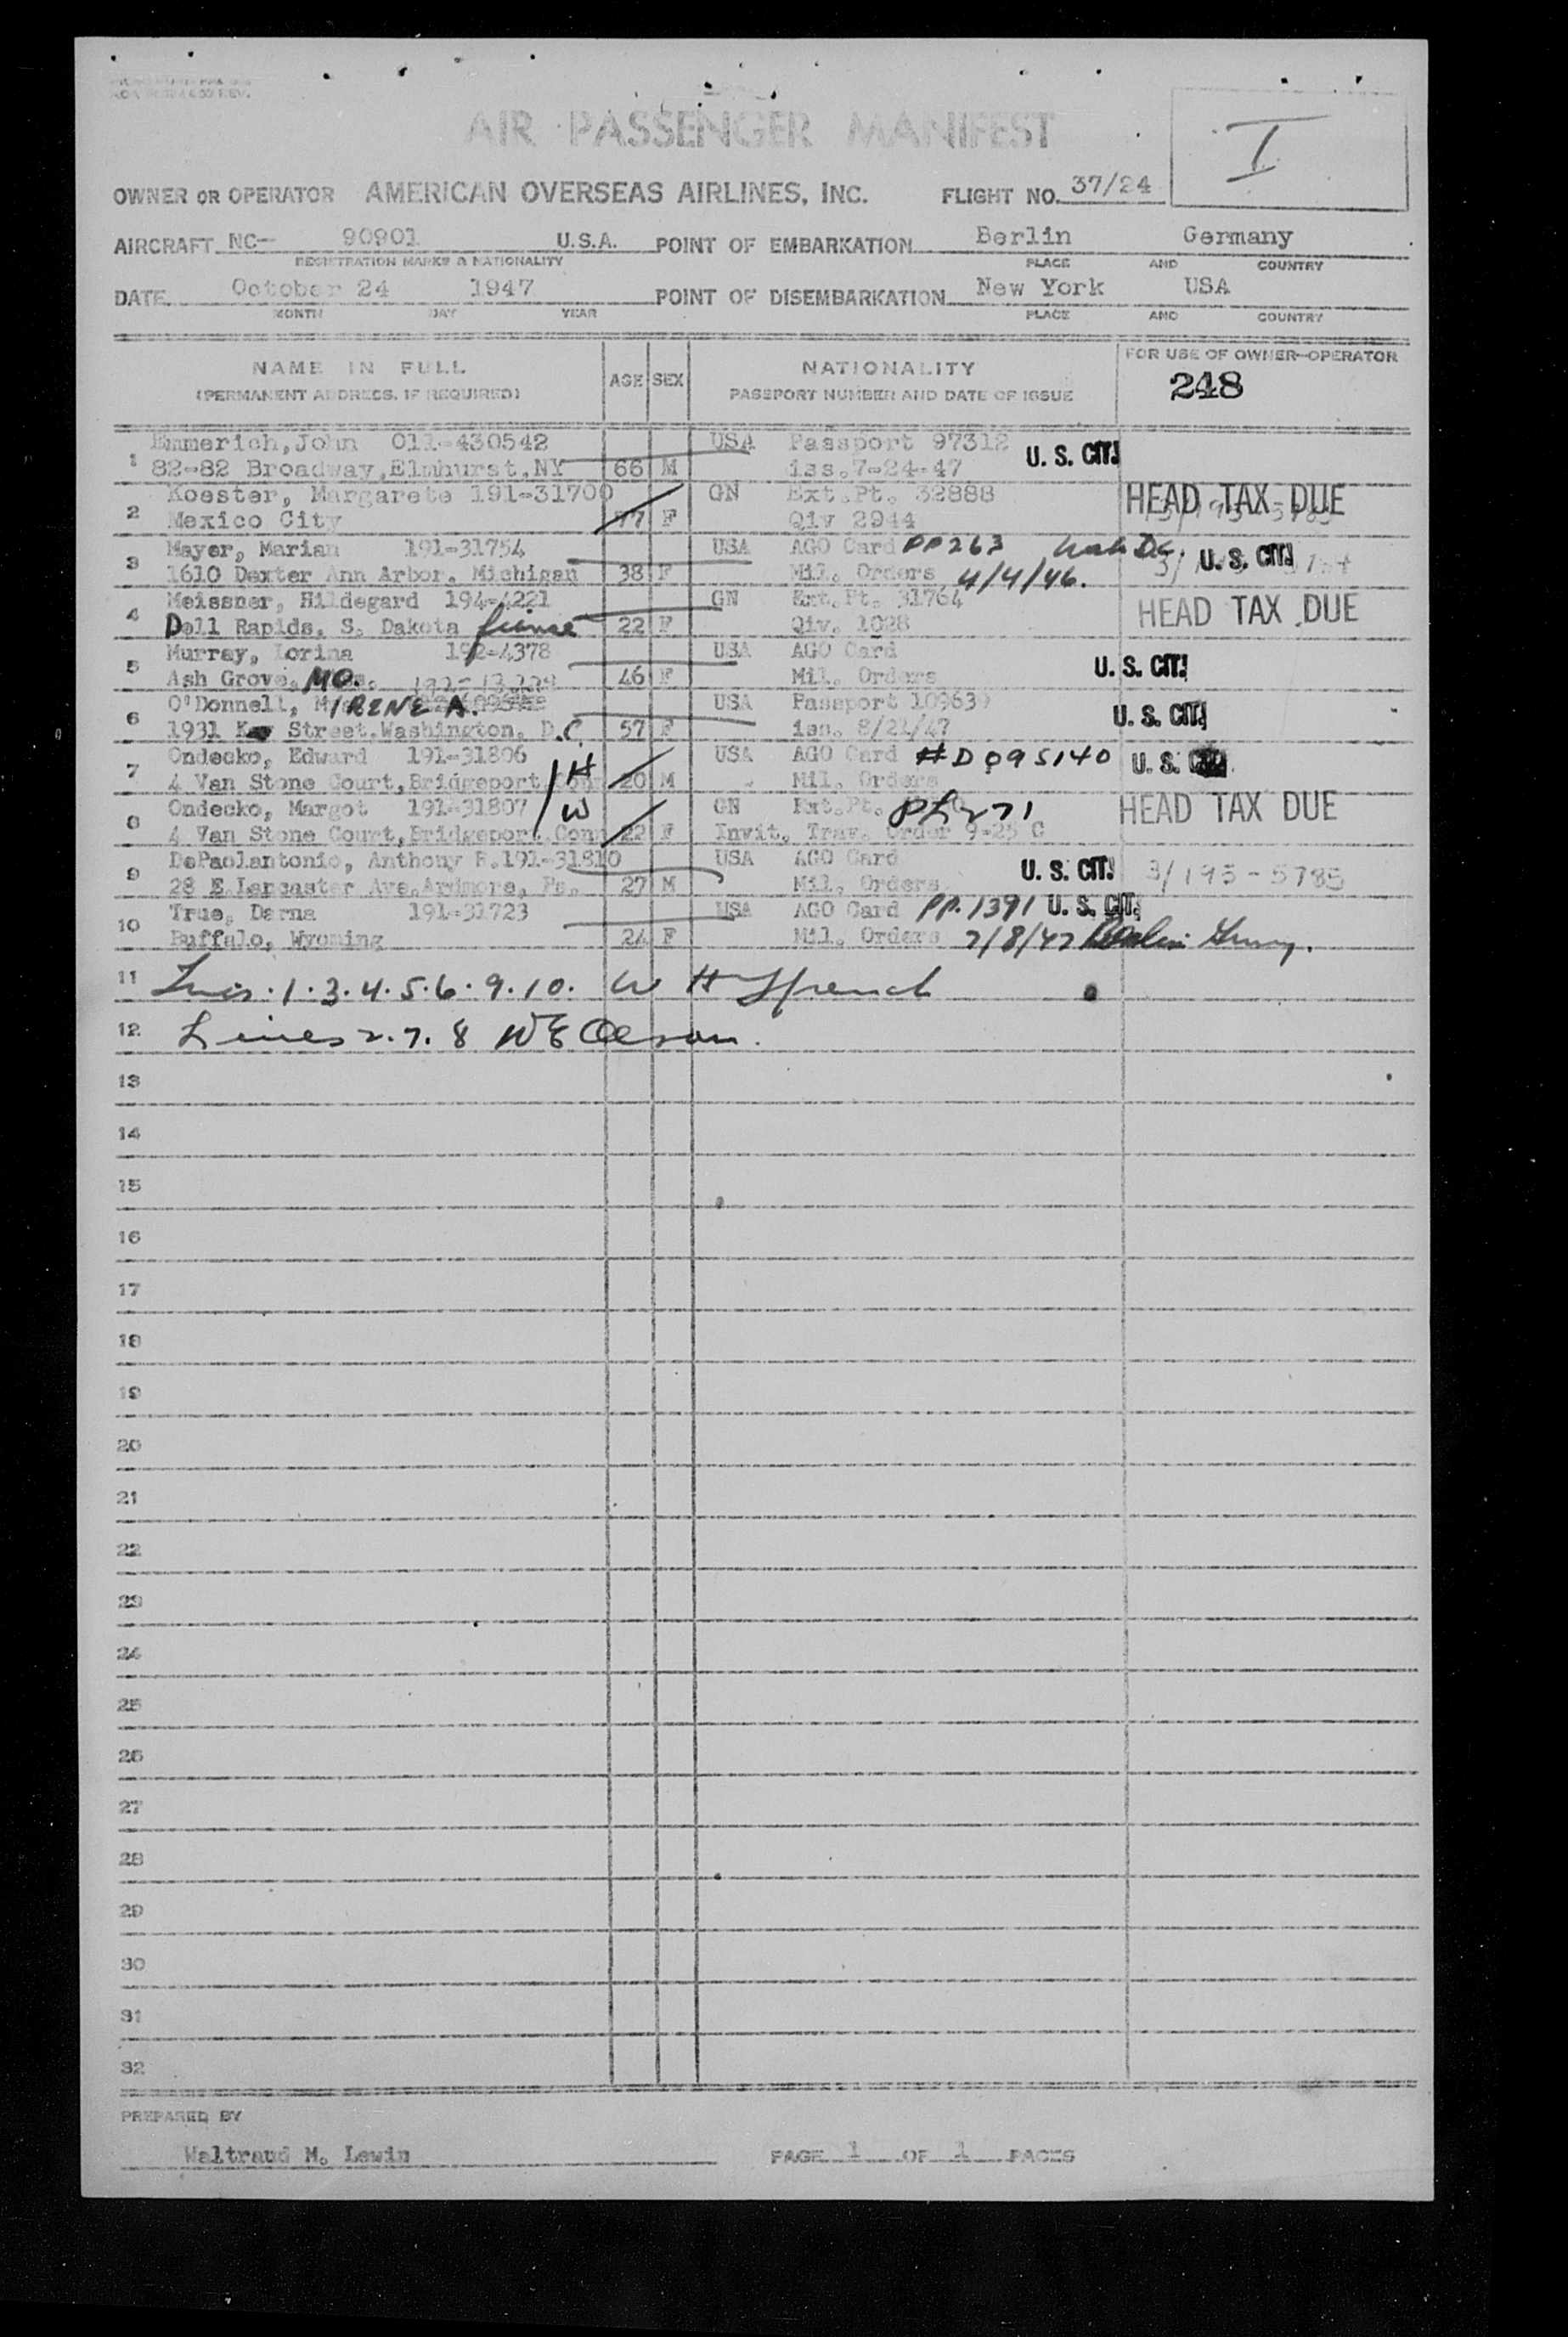 AIR PASSENGER MANIFEST
I
OWNER OR OPERATOR AMERICAN OVERSEAS AIRLINES, INC. FLIGHT NO. 37/24
AIRCRAFT NC- 90901 U.S.A. POINT OF EMBARKATION Berlin Germany
REGISTRATION MARKS & NATIONALITY PLACE AND COUNTRY
DATE October 24 1947 POINT OF DISEMBARKATION New York USA
MONTH DAY YEAR PLACE AND COUNTRY
NAME IN FULL
(PERMANENT ADDRESS, IF REQUIRED)
AGE SEX
NATIONALITY
PASSPORT NUMBER AND DATE OF ISSUE
FOR USE OF OWNER-OPERATOR
248
1 Emmerich, John 011-430542 USA Passport 97312
82-82 Broadway, Elmhurst, NY 66 M iss. 7-24-47 U. S. CIT.
2 Koester, Margarete 191-31700 GN Ext. Pt. 32888 HEAD TAX DUE
Mexico City 77 F Qiv 2944
3 Mayer, Marian 191-31754 USA AGO Card PP263 Wash D.C. U. S. CIT.
1610 Dexter Ann Arbor, Michigan 38 F Mil. Orders 4/4/46.
4 Meissner, Hildegard 194-4221 GN Ext. Pt. 31764 HEAD TAX DUE
Dell Rapids, S. Dakota fiancé 22 F Qiv. 1028
5 Murray, Lorina 192-4378 USA AGO Card
Ash Grove, MO. 46 F Mil. Orders U. S. CIT.
6 O'Donnell, IRENE A. USA Passport 109639
1931 Street, Washington, D.C. 57 F iss. 8/21/47 U. S. CIT.
7 Ondecko, Edward 191-31806 H USA AGO Card #D095140 U. S.
4 Van Stone Court, Bridgeport 20 M Mil. Orders
8 Ondecko, Margot 191-31807 W GN Ext. Pt. HEAD TAX DUE
4 Van Stone Court, Bridgeport, Conn 22 F Invit. Trav. Order 9-25 C
9 DePaolantonio, Anthony R. 191-31810 USA AGO Card U. S. CIT. 3/195-5785
28 E. Lancaster Ave, Ardmore, Pa. 27 M Mil. Orders
10 True, Darna 191-31723 USA AGO Card PP. 1391 U. S. CIT.
Buffalo, Wyoming 24 F Mil. Orders 7/8/47 Berlin Germy.
11 Lines 1.3.4.5.6.9.10. W H French
12 Lines 2.7.8 WE Olesson.
13
14
15
16
17
18
19
20
21
22
23
24
25
26
27
28
29
30
31
32
PREPARED BY
Waltraud M. Lewin PAGE 1 OF 1 PAGES